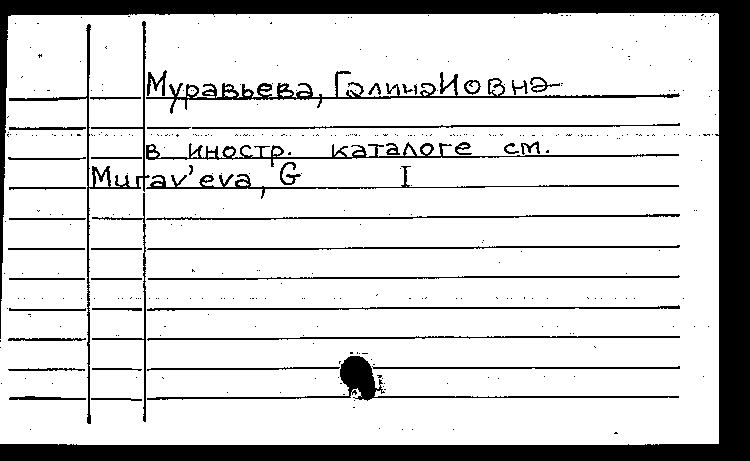 Муравьева, Галина Иовна
в иностр. каталоге см.
Murav'eva, G I